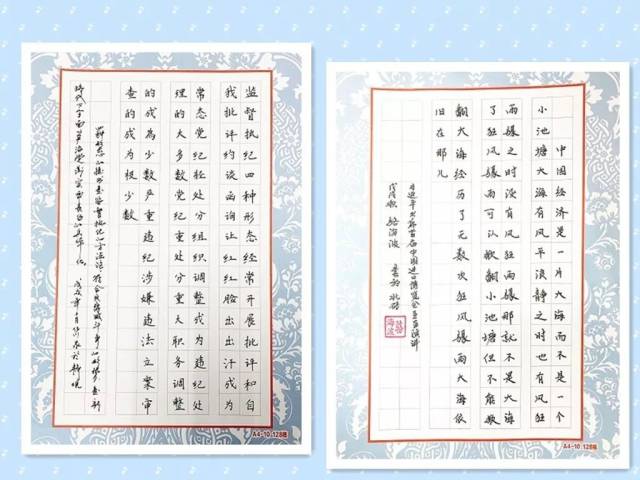 监督执纪四种形态经常开展批评和自
我批评约谈函询让红红脸出出汗成为
常态党纪轻处分组织调整成为违纪处
理的大多数党纪重处分重大职务调整
的成为少数严重违纪涉嫌违法立案审
查的成为极少数
A4-10.128格
中国经济是一片大海而不是一个
小池塘大海有风平浪静之时也有风狂
雨骤之时没有风狂雨骤那就不是大海
了狂风骤雨可以掀翻小池塘但不能掀
翻大海经历了无数次狂风骤雨大海依
旧在那儿
习近平 首届中国进口博览会主旨演讲
海波
A4-10.128格